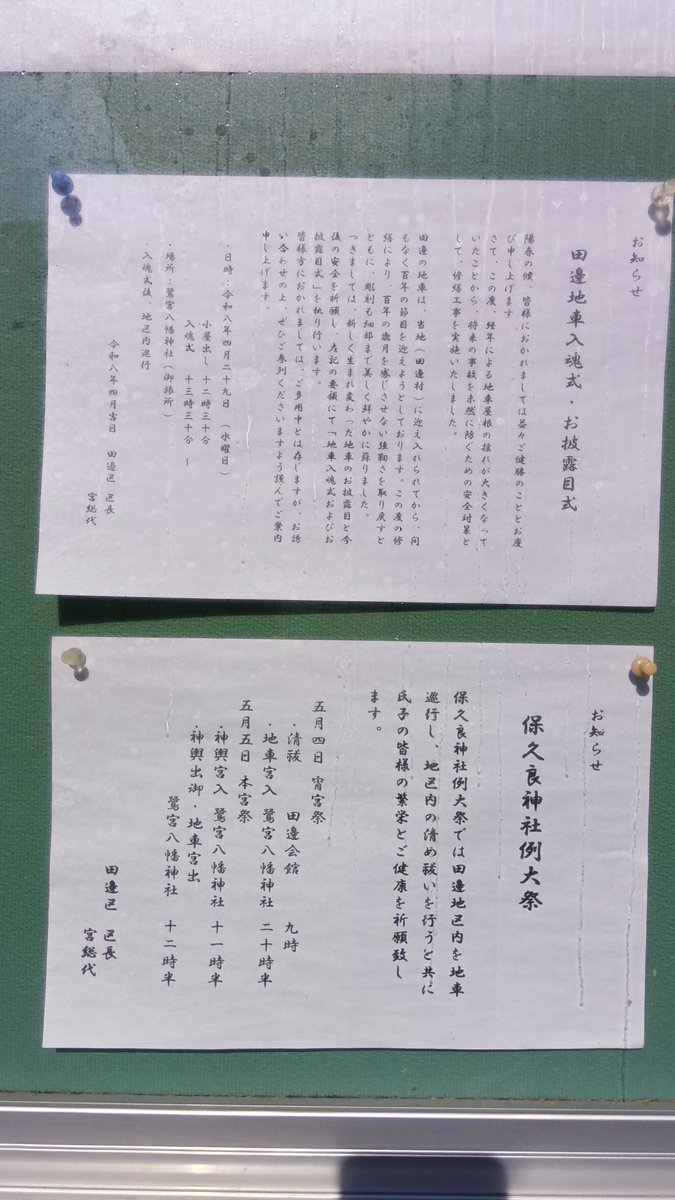 お知らせ
田邊地車入魂式・お披露目式
陽春の候、皆様におかれましては益々ご健勝のこととお慶
び申し上げます
さて、この度、経年による地車屋根の揺れが大きくなって
いたことから、将来の事故を未然に防ぐための安全対策と
して、修繕工事を実施いたしました。
田邊の地車は、当地（田邊村）に迎え入れられてから、間
もなく百年の節目を迎えようとしております。この度の修
繕により、百年の歳月を感じさせない強靭さを取り戻すと
ともに、彫刻も細部まで美しく鮮やかに蘇りました。
つきましては、新しく生まれ変わった地車のお披露目と今
後の安全を祈願し、左記の要領にて「地車入魂式およびお
披露目式」を執り行います。
皆様方におかれましては、ご多用中とは存じますが、お誘
い合わせの上、ぜひご参列くださいますよう謹んでご案内
申し上げます。
・日時：令和八年四月二十九日（水曜日）
小屋出し 十二時三十分
入魂式 十三時三十分 ～
・場所：鷺宮八幡神社（御旅所）
・入魂式後、地区内巡行
令和八年四月吉日 田邊区 区長
宮総代
お知らせ
保久良神社例大祭
保久良神社例大祭では田邊地区内を地車
巡行し、地区内の清め祓いを行うと共に
氏子の皆様の繁栄とご健康を祈願致し
ます。
五月四日 宵宮祭
・清祓 田邊会館 九時
・地車宮入 鷺宮八幡神社 二十時半
五月五日 本宮祭
・神輿宮入 鷺宮八幡神社 十一時半
・神輿出御・地車宮出
鷺宮八幡神社 十二時半
田邊区 区長
宮総代